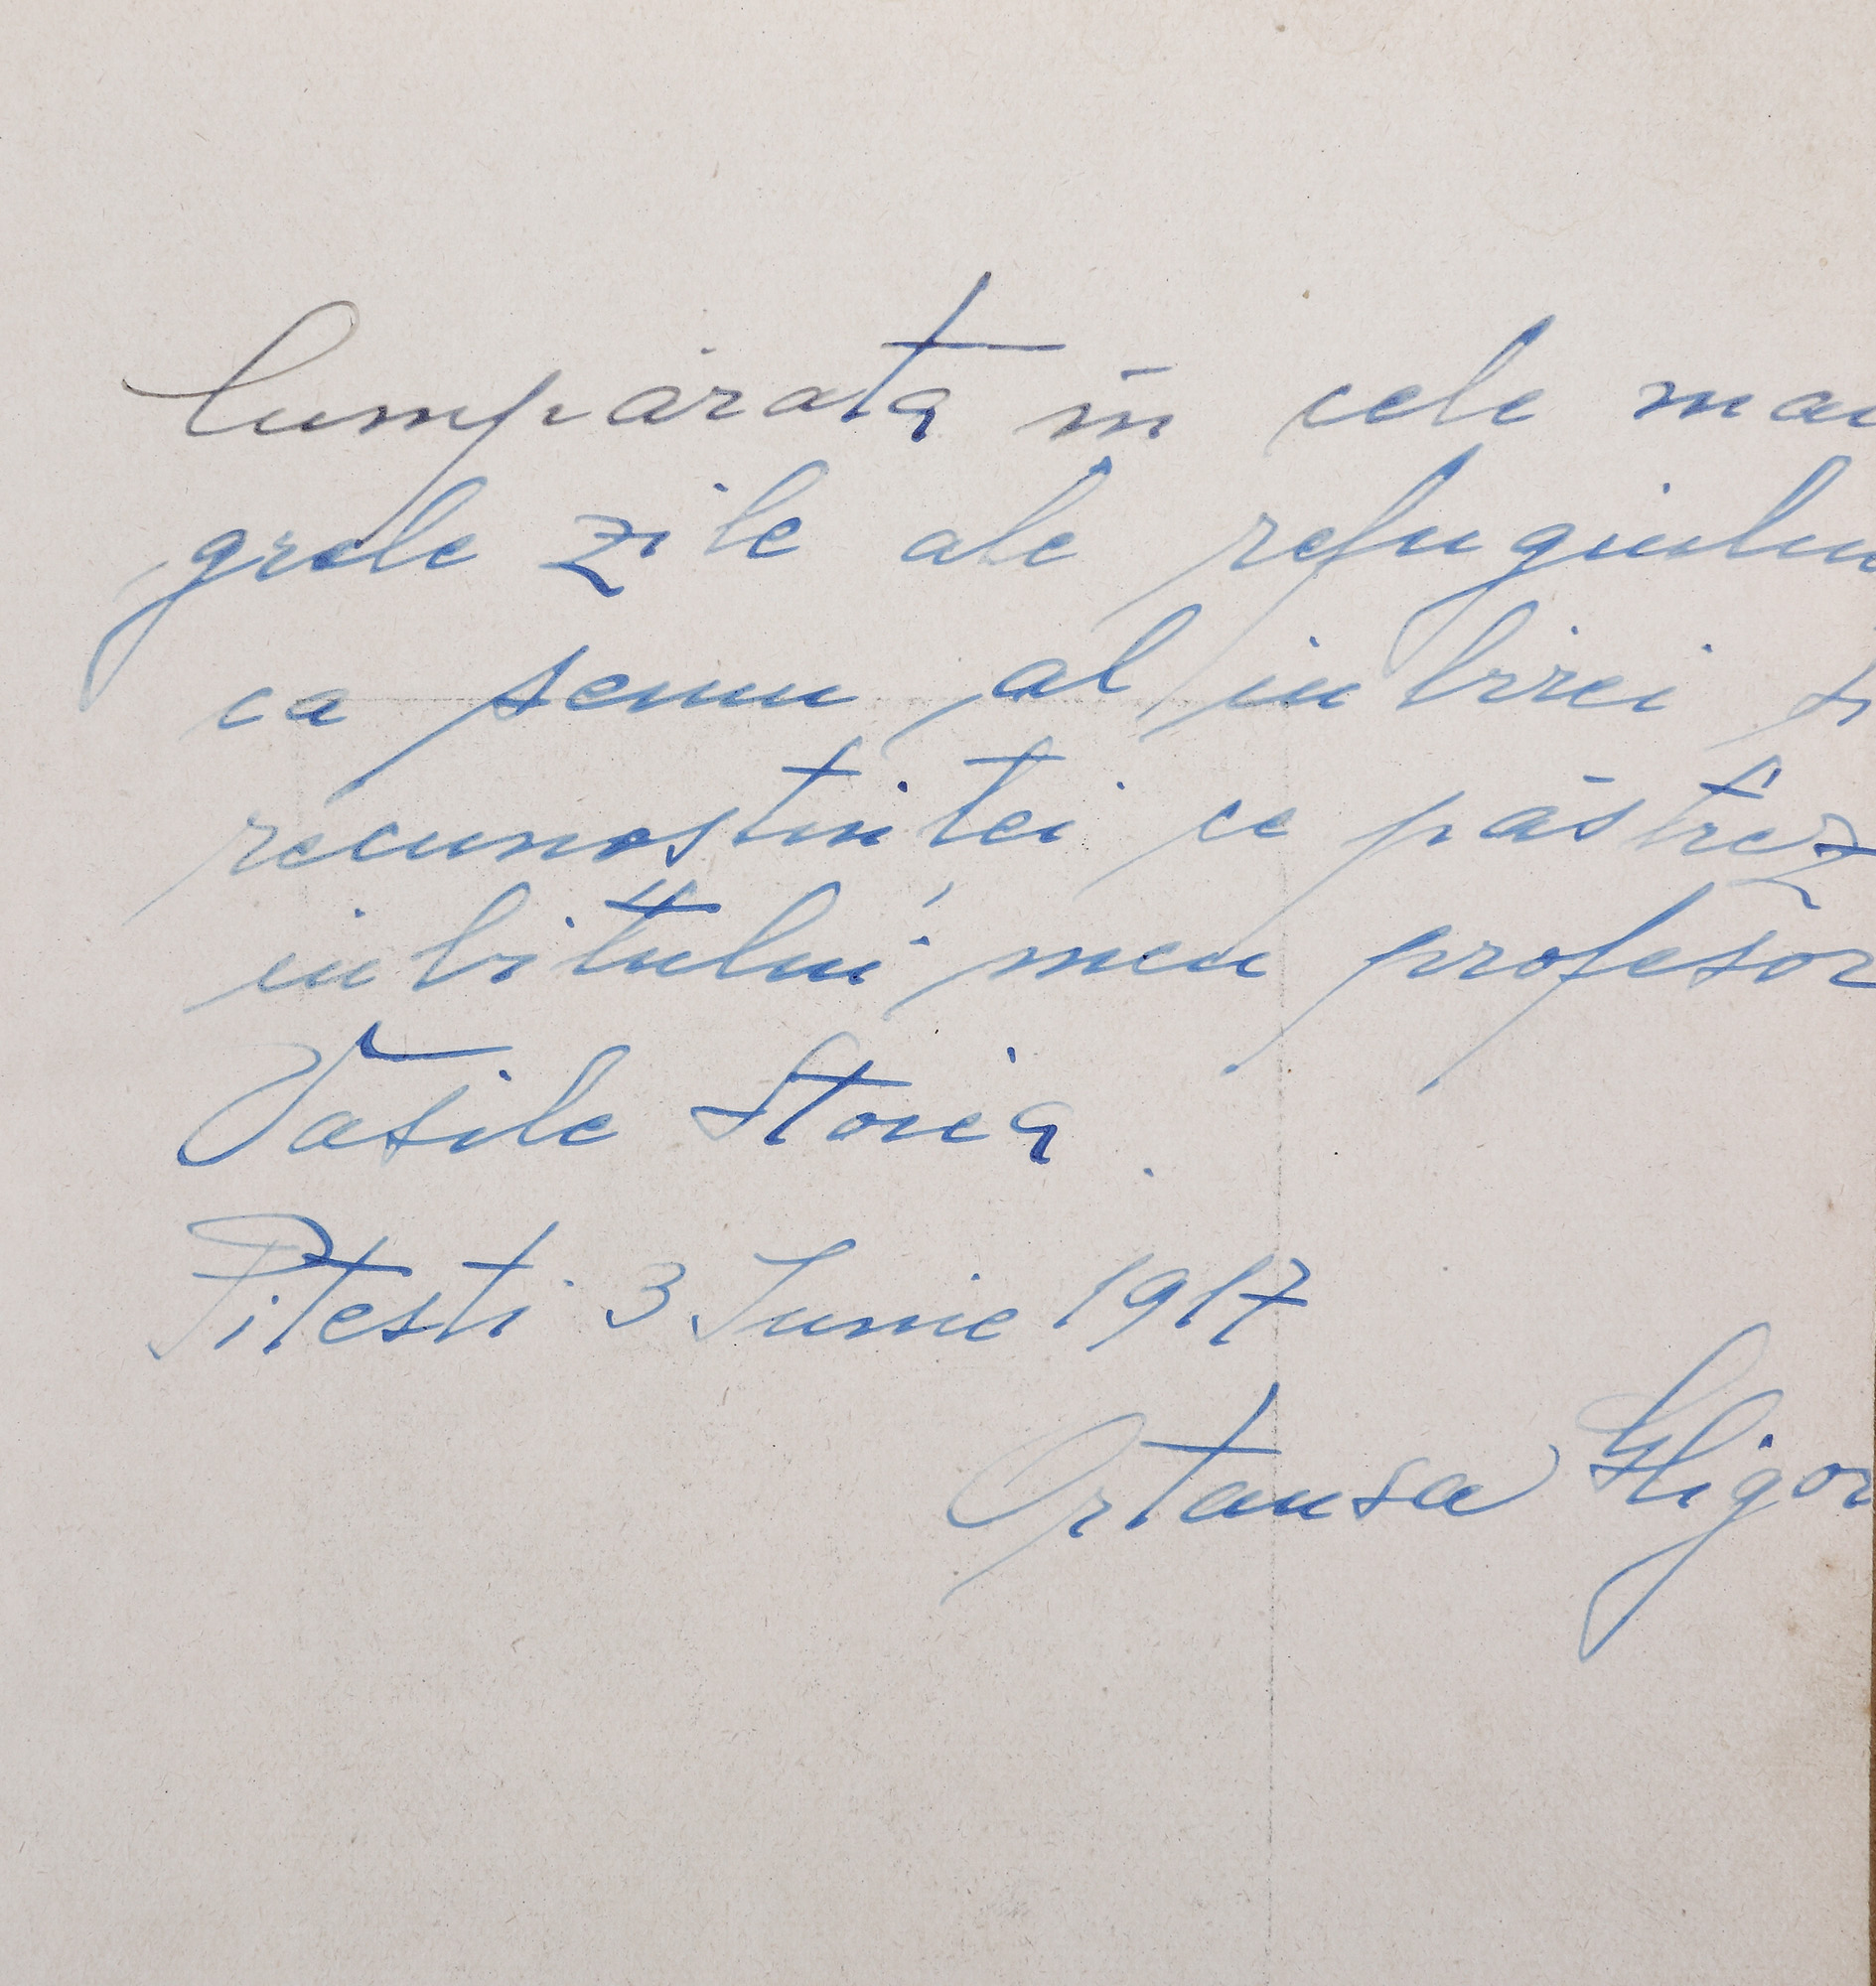 Cumpărata în cele mai
grele zile ale refugiului
ca semn al iubirei și
recunostintei ce păstrez
iubitului meu profesor
Vasile Stoica.
Pitesti 3 Iunie 1917
Ortansa Gligor